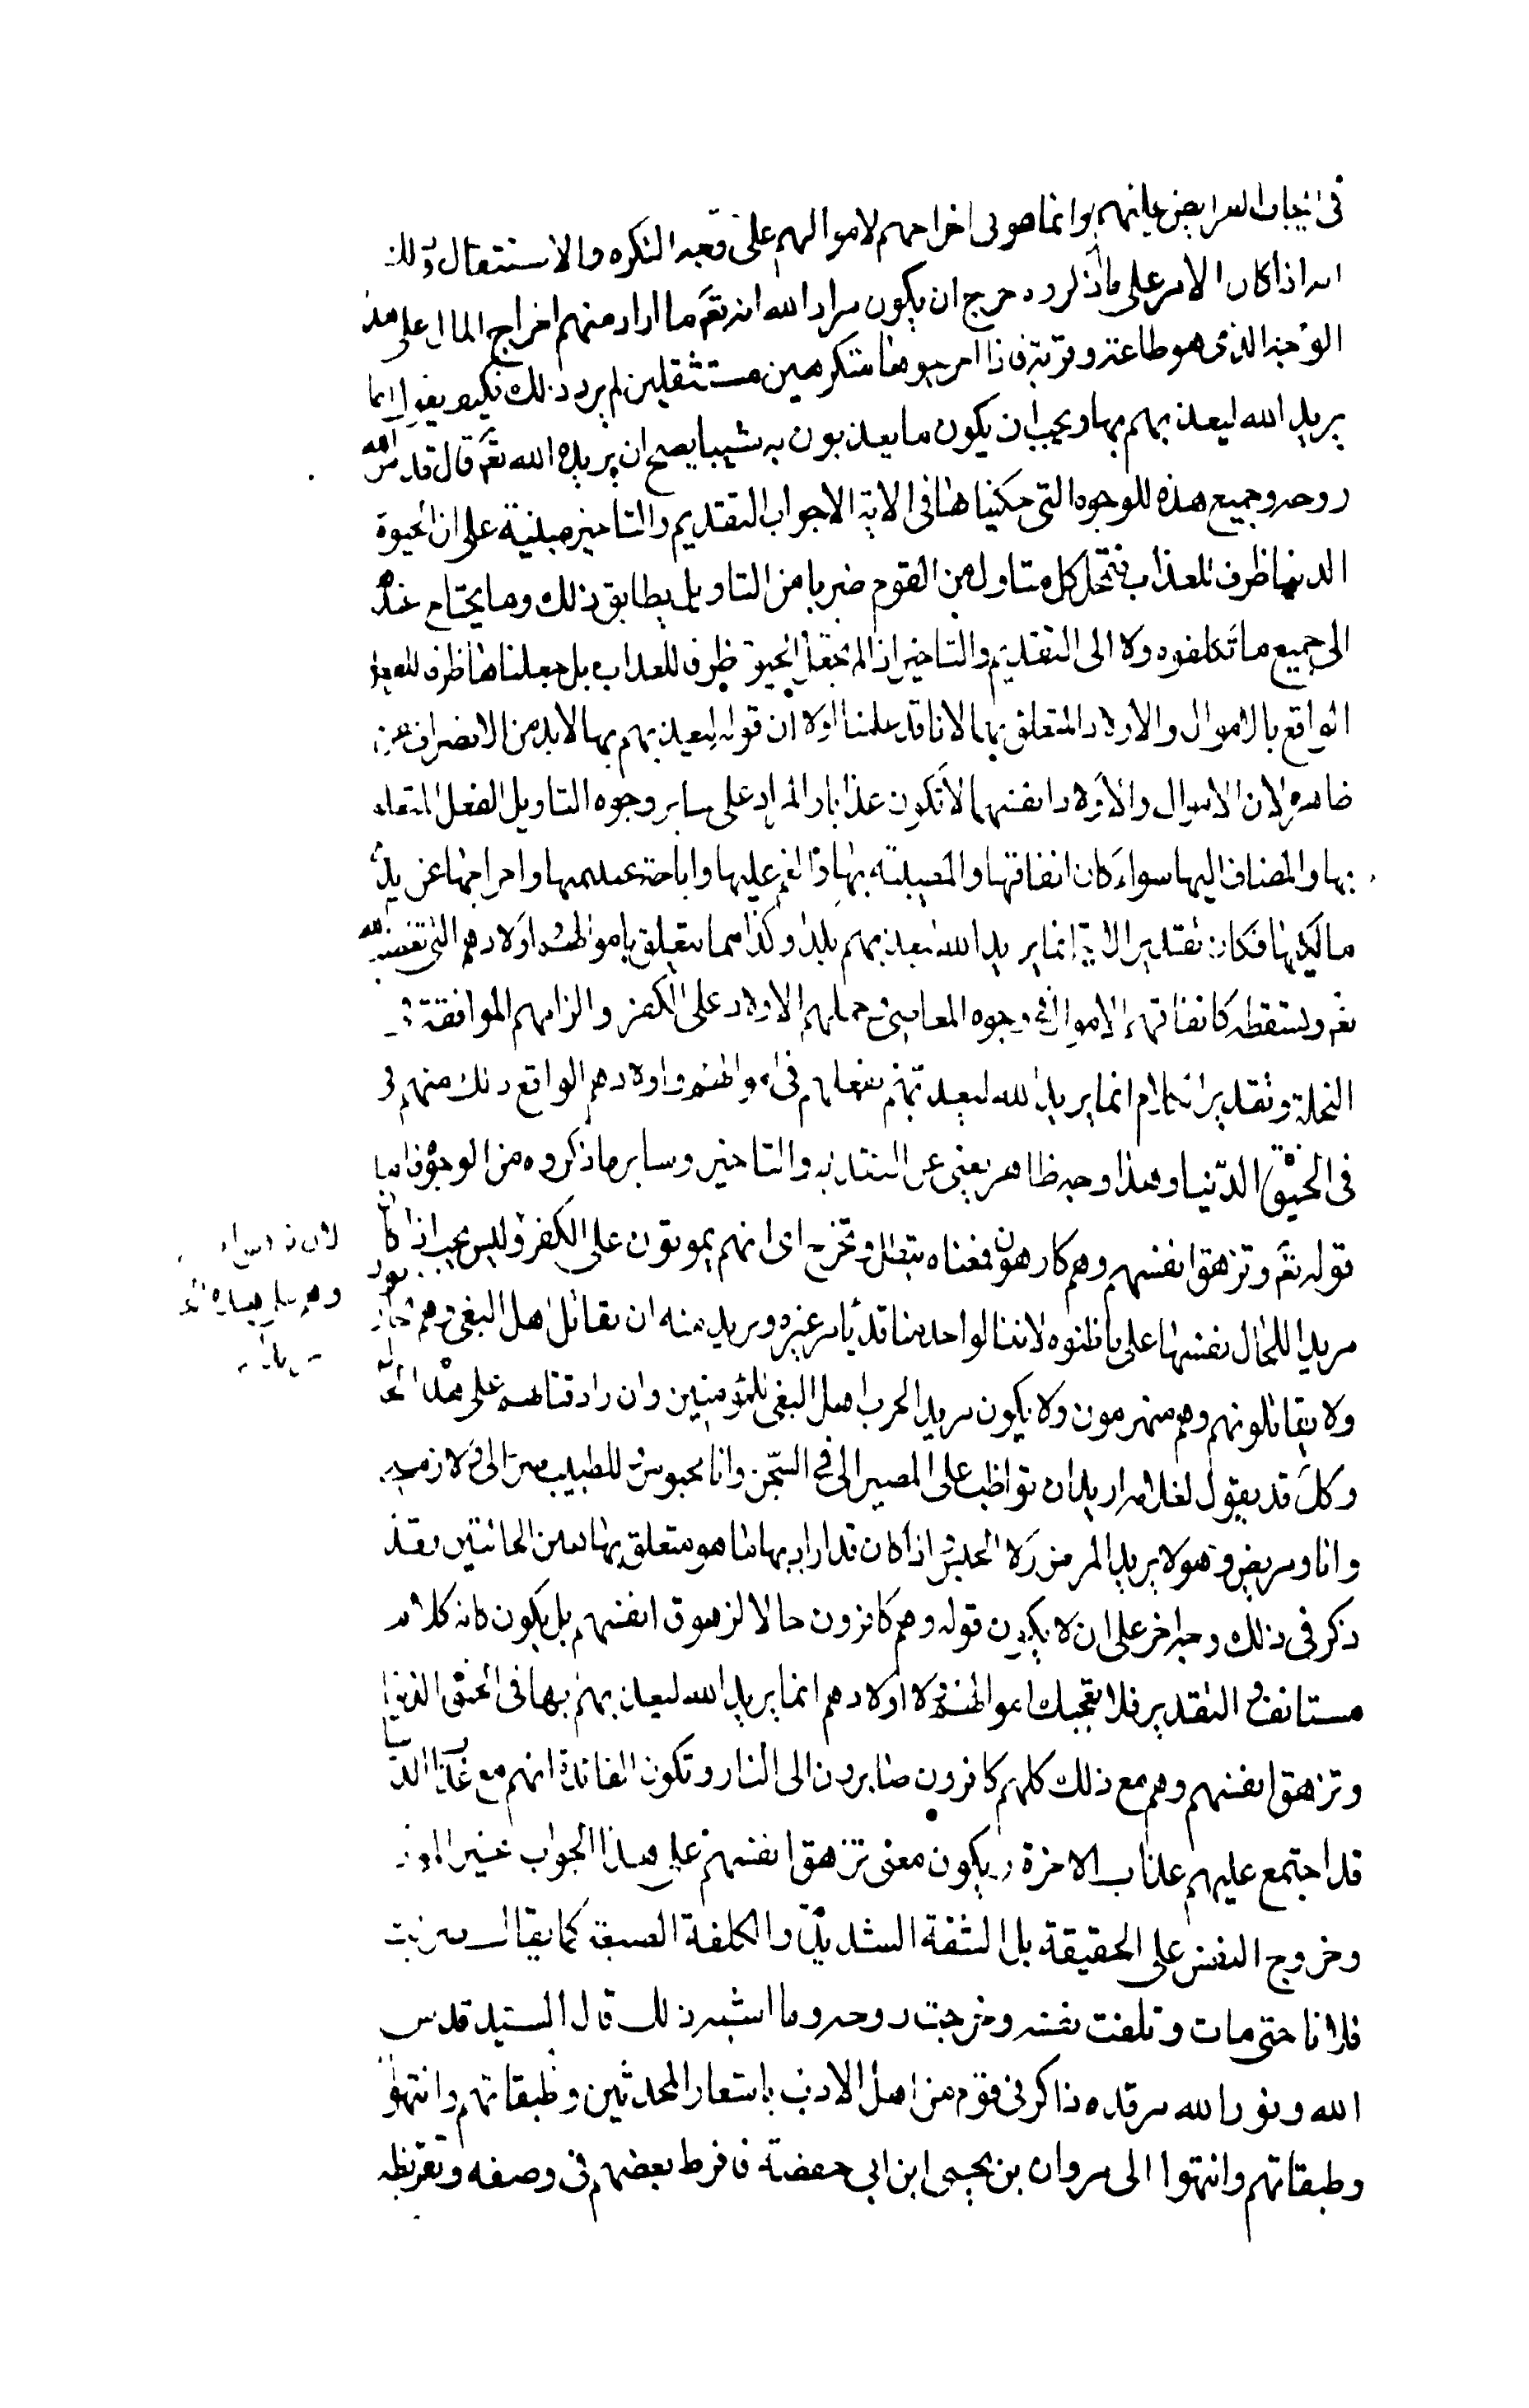 في ايجاب الفرايض عليهم وانما هو في اخراجهم لاموالهم على وجه التكره والاستثقال وذلك
انه اذا كان الامر على ما ذكروه خرج ان يكون مراد الله انه تعَ ما اراد منهم اخراج المال على هذ
الوجه الذي هو طاعة وقربة فاذا اخرجوها متكرهين مستثقلين لم يرد ذلك فكيف يقول انما
يريد الله ليعذبهم بها ويجب ان يكون ما يعذبون به شيئا يصح ان يريده الله تعَ قال قدس الله
روحه وجميع هذه الوجوه التي حكيناها في الاية الا جواب التقديم والتاخير مبنية على ان الحيوة
الدنيا ظرف للعذاب فتمحل كل متاول من القوم ضربا من التاويل يطابق ذلك وما يحتاج عندنا
الى جميع ما تكلفوه ولا الى التقديم والتاخير اذا لم تجعل الحيوة ظرف للعذاب بل جعلناها ظرف للفعل
الواقع بالاموال والاولاد المتعلق بهما لانا قد علمنا اولا ان قوله ليعذبهم بها لابد من الانصراف عن
ظاهره لان الاموال والاولاد انفسهما لا تكون عذابا والمراد على ساير وجوه التاويل الفعل المتعلق
بها والمضاف اليها سواء كان انفاقها والمصيبة بها والغم عليها واباحة غنيمتها واخراجها عن يد
مالكيها فكان تقدير الاية انما يريد الله ليعذبهم بكذا وكذا مما يتعلق باموالهم واولادهم التي تغضب الله
تعَ ويسخطه كانفاقهم الاموال في وجوه المعاصي وحملهم الاولاد على الكفر والزامهم الموافقة في
النحلة وتقدير الكلام انما يريد الله ليعذبهم بفعلهم في اموالهم واولادهم الواقع ذلك منهم في
في الحيوة الدّنيا وهذا وجه ظاهر يغني عن التقديم والتاخير وساير ما ذكروه من الوجوه فاما
قوله تعَ وتزهق انفسهم وهم كارهون فمعناه تبطل وتخرج اى انهم يموتون على الكفر وليس يجب اذا كان
مريدا للحال نفسها على ما ظنوه لان الواحد منا قد يأمر غيره ويريد منه ان يقاتل اهل البغى وهم
ولا يقاتلونهم وهم منهزمون ولا يكون مريد الحرب اهل البغى للمؤمنين وان راد قتالهم على هذه الحالة
وكل قد يقول لغلامه اريد ان تواظب على المصير الى في السّجن وانا محبوس وللطبيب صر الى ولازمني
وانا مريض وهو لا يريد المرض ولا الحبس واذا كان قد اراد بها ما هو متعلق بهاتين الحالتين وقد
ذكر في ذلك وجه اخر على ان لا يكون قوله وهم كافرون حالا لزهوق انفسهم بل يكون كانه كلام
مستانف والتقدير فلا تعجبك اموالهم ولا اولادهم انما يريد الله ليعذبهم بها في الحيوة الدنيا
وتزهق انفسهم وهم مع ذلك كلهم كافرون صايرون الى النار وتكون الفائدة انهم مع عذاب الدنيا
قد اجتمع عليهم عذاب الاخرة ويكون معنى تزهق انفسهم على هذا الجواب غير الموت
وخروج النفس على الحقيقة بل المشقة الشديدة والكلفة الصعبة كما يقال ضربت
فلانا حتى مات وتلفت نفسه وخرجت روحه وما اشبه ذلك قال السيد قدس
الله ونور الله مرقده ذاكرني قوم من اهل الادب باشعار المحدثين وطبقاتهم وانتهوا
وطبقاتهم وانتهوا الى مروان بن يحيى ابن ابي حفصة فافرط بعضهم في وصفه وتقريظه